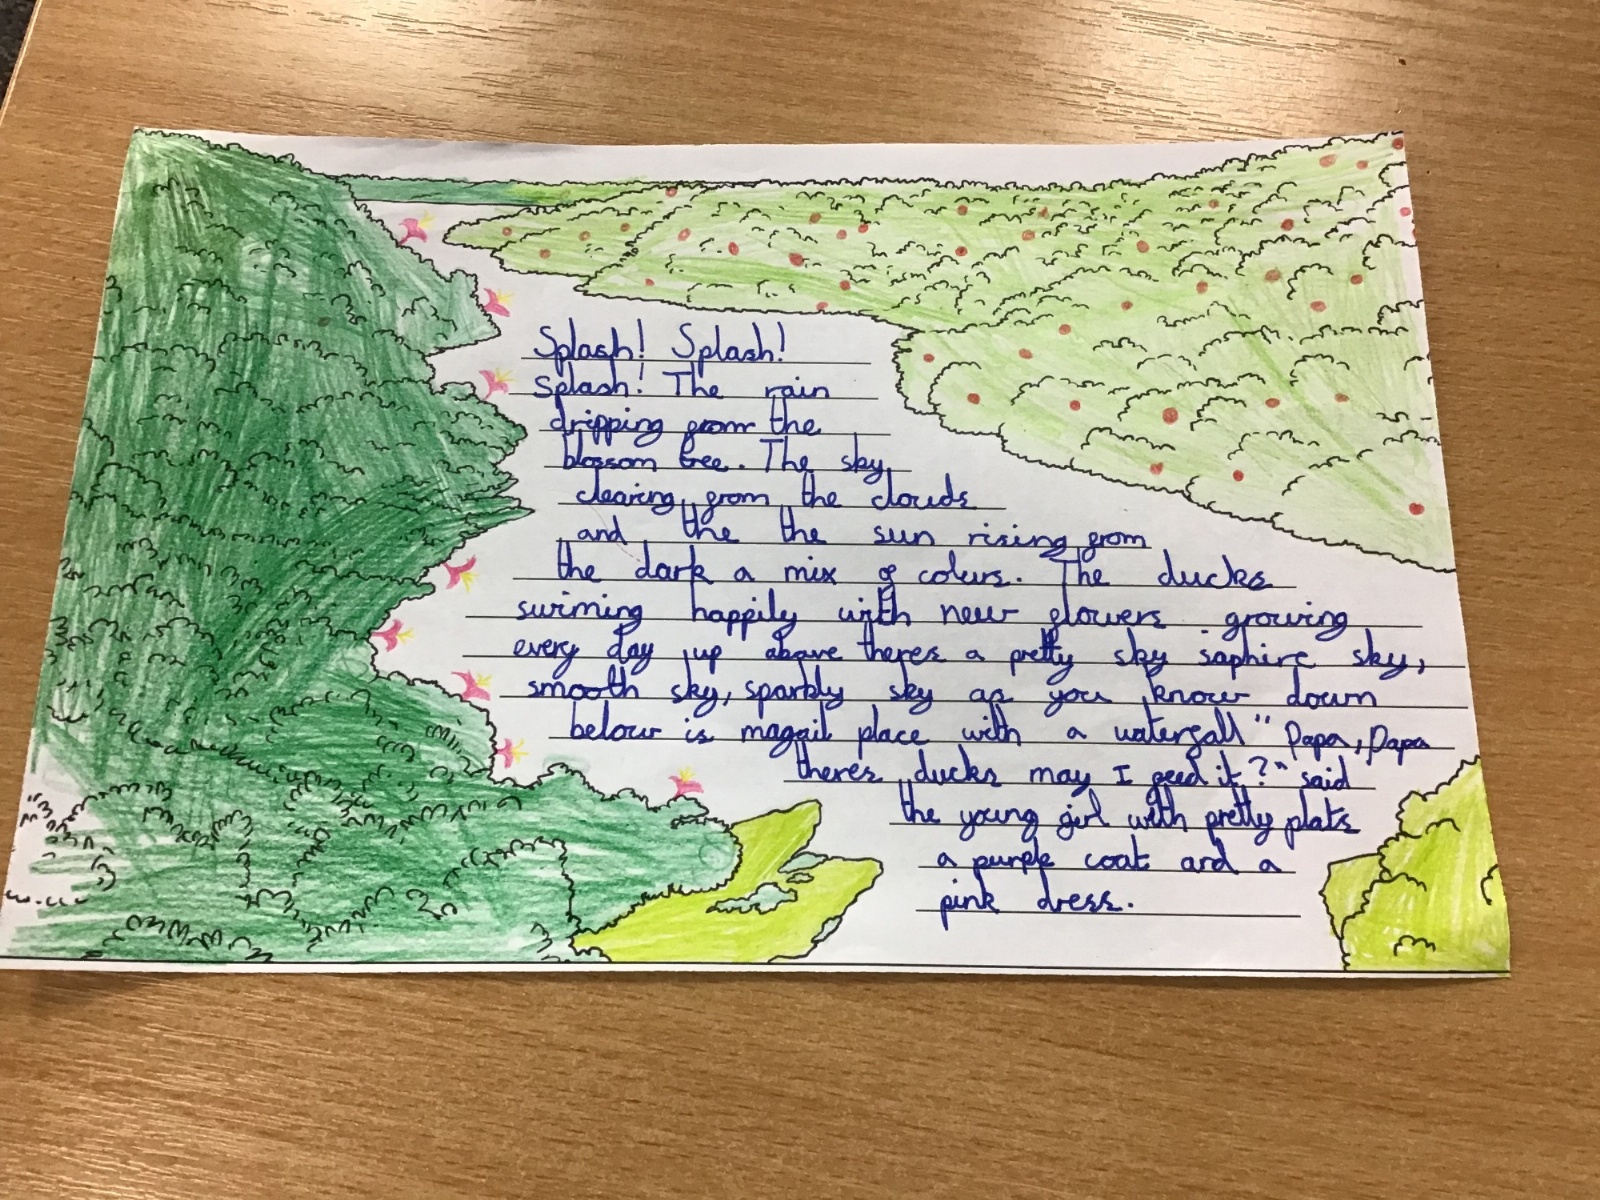 Splash! Splash!
Splash! The rain
dripping from the
blossom tree. The sky
clearing from the clouds
and the the sun rising from
the dark a mix of colurs. The ducks
swiming happily with new flowers growing
every day up above theres a pretty sky saphire sky,
smooth sky, sparkly sky as you know down
below is magail place with a waterfall "Papa, Papa
theres ducks may I feed it?" said
the young girl with pretty plats
a purple coat and a
pink dress.